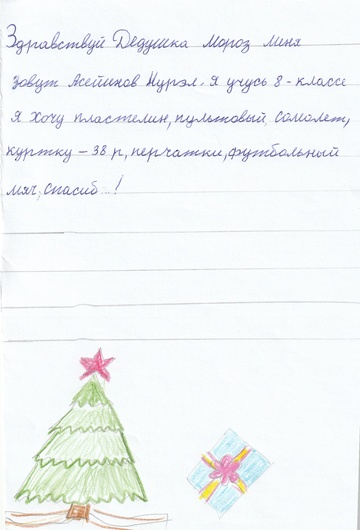 Здравствуй Дедушка Мороз меня
зовут Асейинов Нурэл. Я учусь 8-классе
Я хочу пластелин, пультовый самолет,
куртку – 38 р, перчатки, футбольный
мяч, спасиб...!